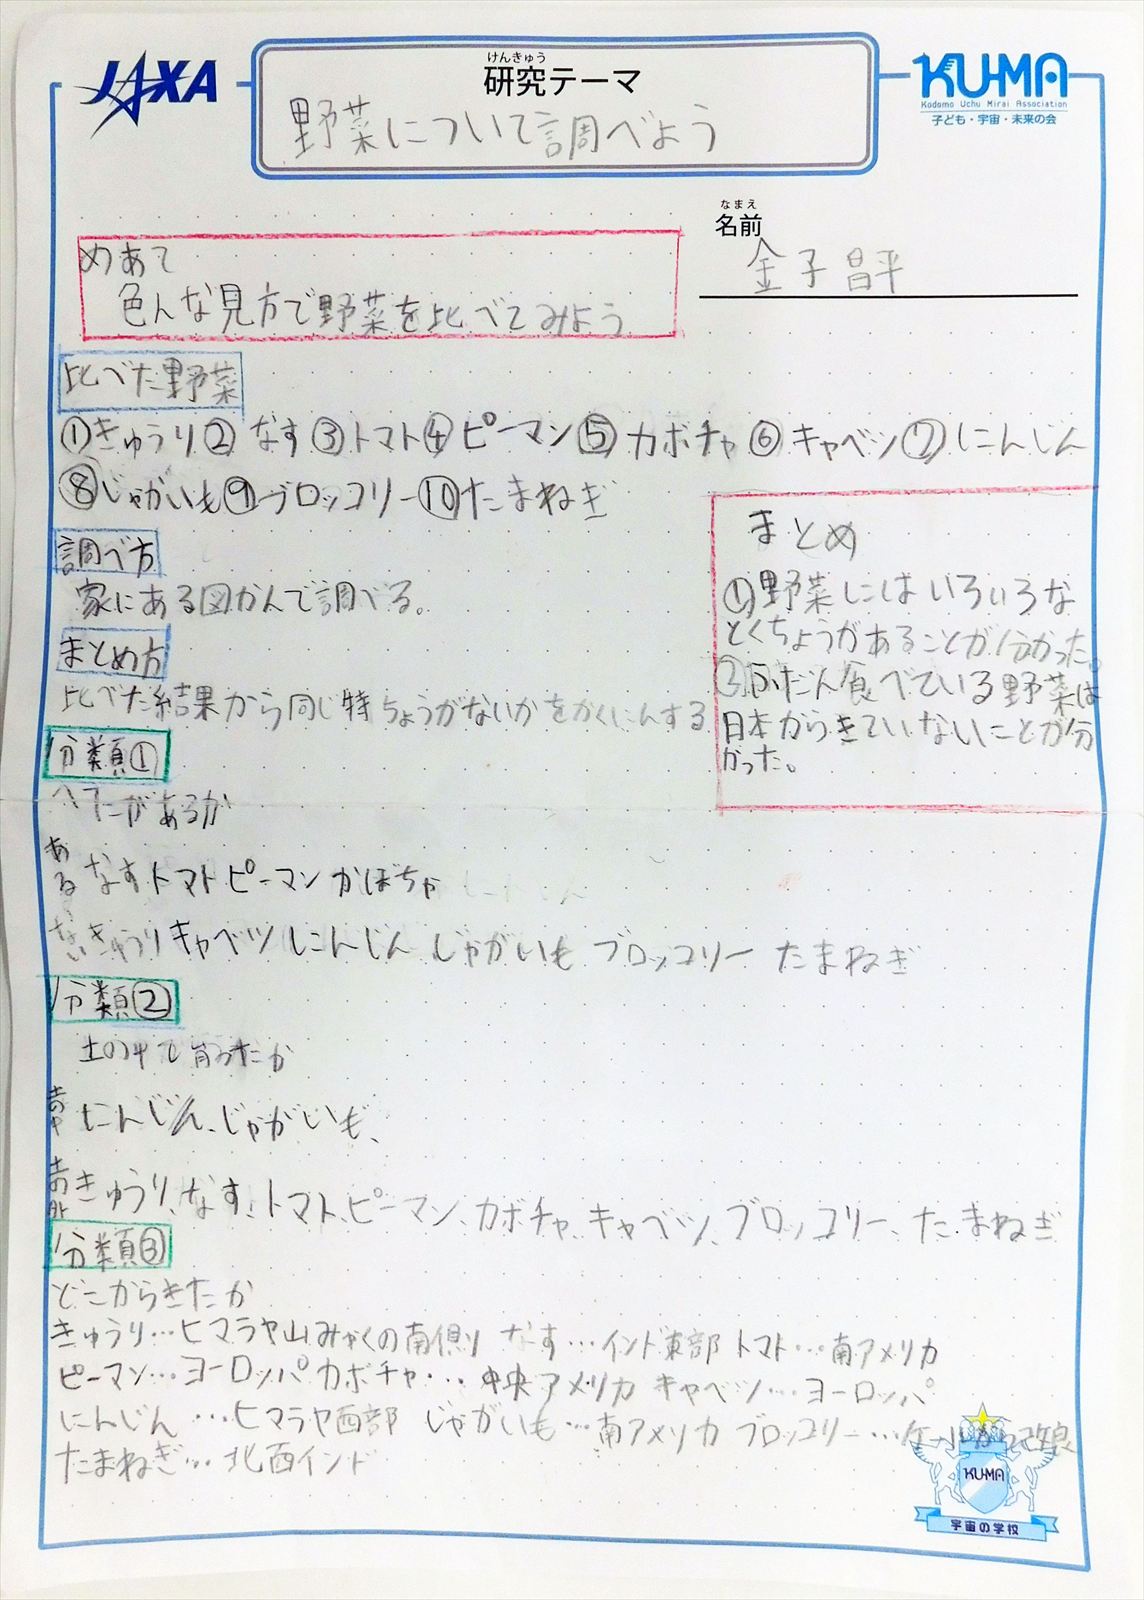 JAXA
けんきゅう
研究テーマ
野菜について調べよう
KU-MA
Kodomo Uchu Mirai Association
子ども・宇宙・未来の会
なまえ
名前
金子昌平
めあて
色んな見方で野菜を比べてみよう
比べた野菜
①きゅうり②なす③トマト④ピーマン⑤カボチャ⑥キャベツ⑦にんじん
⑧じゃがいも⑨ブロッコリー⑩たまねぎ
調べ方
家にある図かんで調べる。
まとめ方
比べた結果から同じ特ちょうがないかをかくにんする
まとめ
①野菜にはいろいろな
とくちょうがあることが分かった。
②ふだん食べている野菜は
日本からきていないことが分
かった。
分類①
へたがあるか
ある なす トマト ピーマン かぼちゃ
ない きゅうり キャベツ にんじん じゃがいも ブロッコリー たまねぎ
分類②
土の中で育ったか
土の中 にんじん、じゃがいも、
土の外 きゅうり、なす、トマト、ピーマン、カボチャ、キャベツ、ブロッコリー、たまねぎ
分類③
どこからきたか
きゅうり…ヒマラヤ山みゃくの南側り なす…インド東部 トマト…南アメリカ
ピーマン…ヨーロッパ カボチャ…中央アメリカ キャベツ…ヨーロッパ
にんじん…ヒマラヤ西部 じゃがいも…南アメリカ ブロッコリー…ケールから改良
たまねぎ…北西インド
KU-MA
宇宙の学校